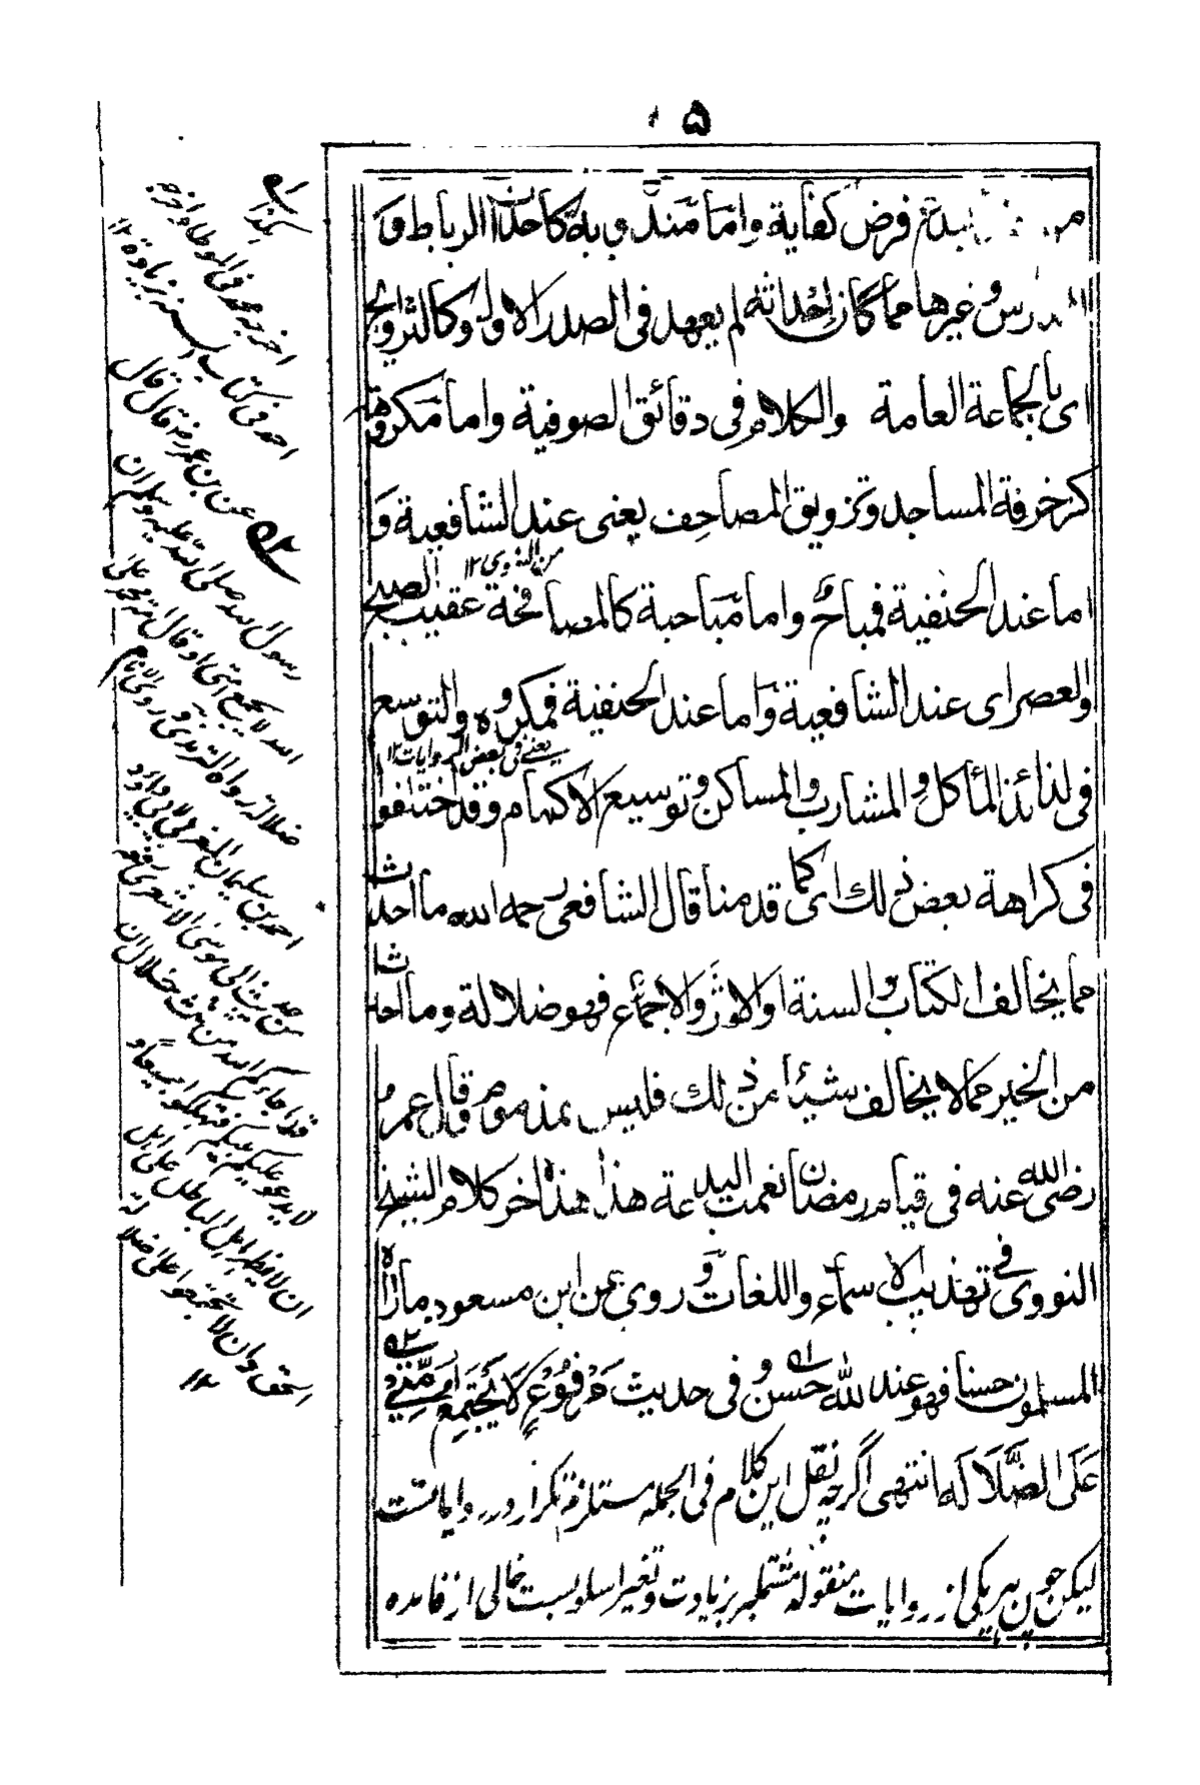 ۵
فرض كفاية واما مندوبة كاحداث الرباط و
المدارس وغيرها مما كان إحداثه لم يعهد فى الصدر الاول وكالتراويح
اى بالجماعة العامة والكلام فى دقائق الصوفية واما مكروهة
كزخرفة المساجد وتزويق المصاحف يعنى عند الشافعية و
من النووى ١٢
اما عند الحنفية فمباح واما مباحة كالمصافحة عقيب الصبح
والعصر اى عند الشافعية واما عند الحنفية فمكروه والتوسع
يعنے فى بعض الروايات ١٢
فى لذائذ المأكل والمشارب والمساكن وتوسيع الاكمام وقد اختلفوا
فى كراهة بعض ذلك اى كما قدمنا قال الشافعى رحمه الله ما احدث
مما يخالف الكتاب والسنة او الاثر والاجماع فهو ضلالة وما احدث
من الخير مما لا يخالف شيئا من ذلك فليس بمذموم وقال عمر
رضى الله عنه فى قيام رمضان نعمت البدعة هذا هذا اخر كلام الشيخ
النووى فى تهذيب الاسماء واللغات و روى عن ابن مسعود ما رآه
المسلمون حسنا فهو عند الله حسن ۱ و فى حديث مرفوع لا يجتمع امتي ۲
على الضلالة انتهى اگرچه نقل این کلام فی الجمله مستلزم تکرار در روایاتست
لیکن چون هر یکی از روایات منقوله مشتمل بر زیادت و تغیر اسلوبست خالی از فائده
۱ هكذا
اخرجه محمد فى الموطا واخرجه
احمد فى كتاب السنة بزيادة ١٢
۲ عن ابن عمر رض قال قال
رسول الله صلى الله عليه وسلم ان
الله لا يجمع امتى او قال امة محمد على
ضلالة رواه الترمذى و روى الامام
احمد بن سليمان المغربى لابى داود
من حديث ابى موسى الاشعرى رفعه
قد اجاركم الله من ثلث خلال ان
لا يدعو عليكم نبيكم فتهلكوا جميعا و
ان لا يظهر اهل الباطل على اهل
الحق وان لا تجتمعوا على ضلالة
١٢